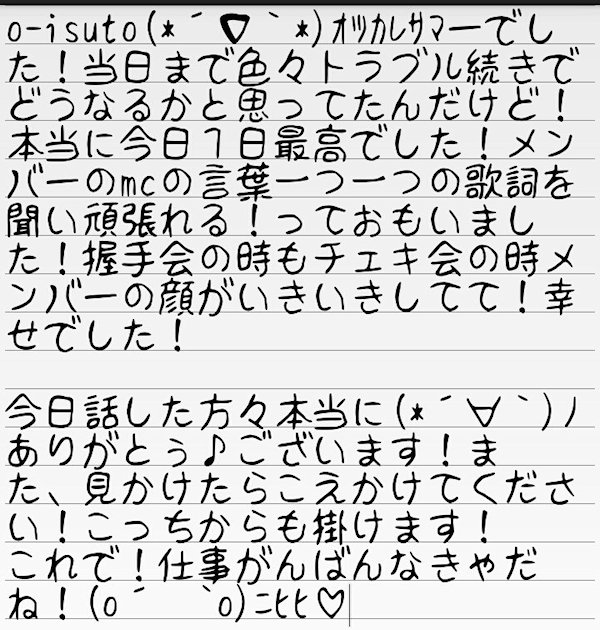 o-isuto(*´∇｀*)ｵﾂｶﾚｻﾏーでし
た！当日まで色々トラブル続きで
どうなるかと思ってたんだけど！
本当に今日1日最高でした！メン
バーのmcの言葉一つ一つの歌詞を
聞い頑張れる！っておもいまし
た！握手会の時もチェキ会の時メ
ンバーの顔がいきいきしてて！幸
せでした！
今日話した方々本当に(*´∀｀)ﾉ
ありがとぅ♪ございます！ま
た、見かけたらこえかけてくださ
い！こっちからも掛けます！
これで！仕事がんばんなきゃだ
ね！(o´　｀o)ﾆﾋﾋ♡